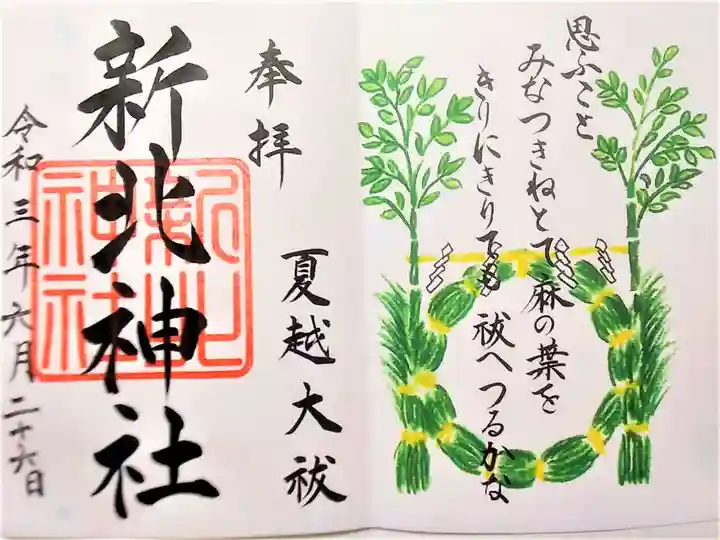 思ふこと
みなつきねとて麻の葉を
きりにきりても祓へつるかな
奉拝
夏越大祓
新北神社
新北
神社
令和三年六月二十六日